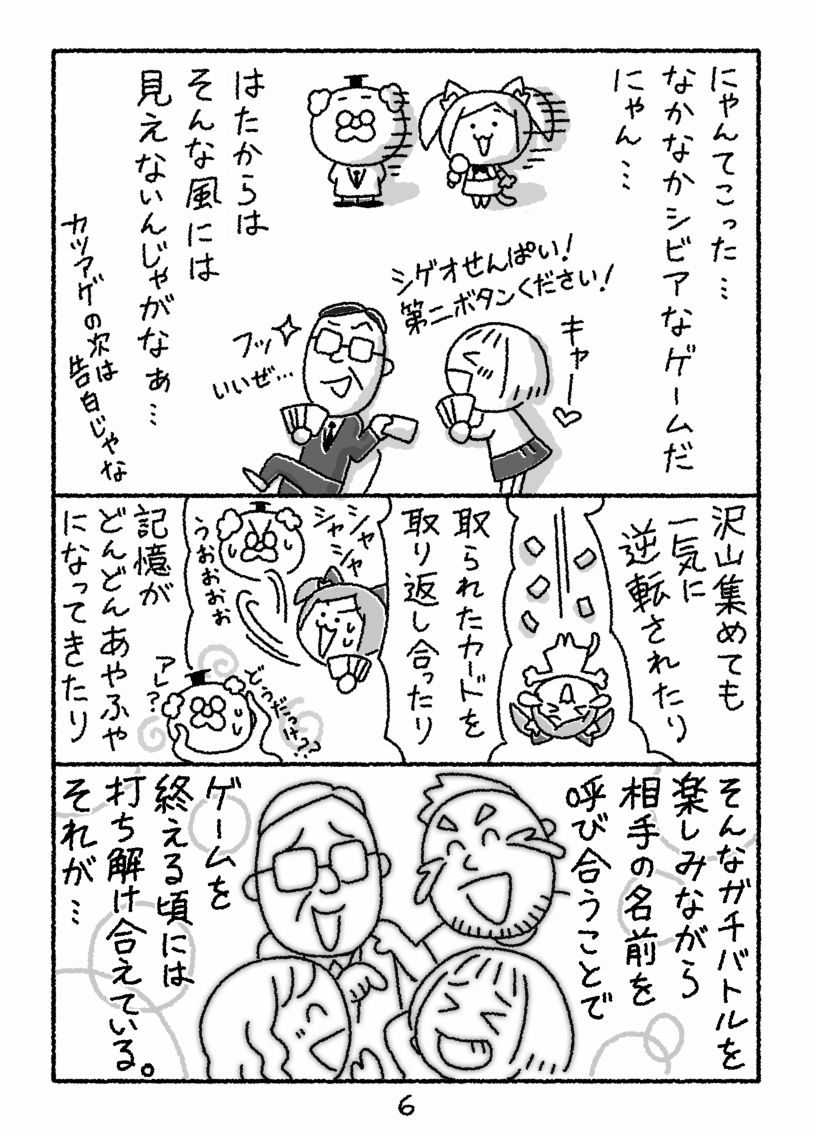 にゃんてこった…
なかなかシビアなゲームだ
にゃん…
はたからは
そんな風には
見えないんじゃがなぁ…
シゲオせんぱい！
第二ボタンください！
キャー♡
フッ
いいぜ…
カツアゲの次は
告白じゃな
沢山集めても
一気に
逆転されたり
取られたカードを
取り返し合ったり
シャ
シャ
シャ
うおおおぉ
記憶が
どんどんあやふや
になってきたり
アレ？
どっちだっけ??
そんなガチバトルを
楽しみながら
相手の名前を
呼び合うことで
ゲームを
終える頃には
打ち解け合えている。
それが…
6